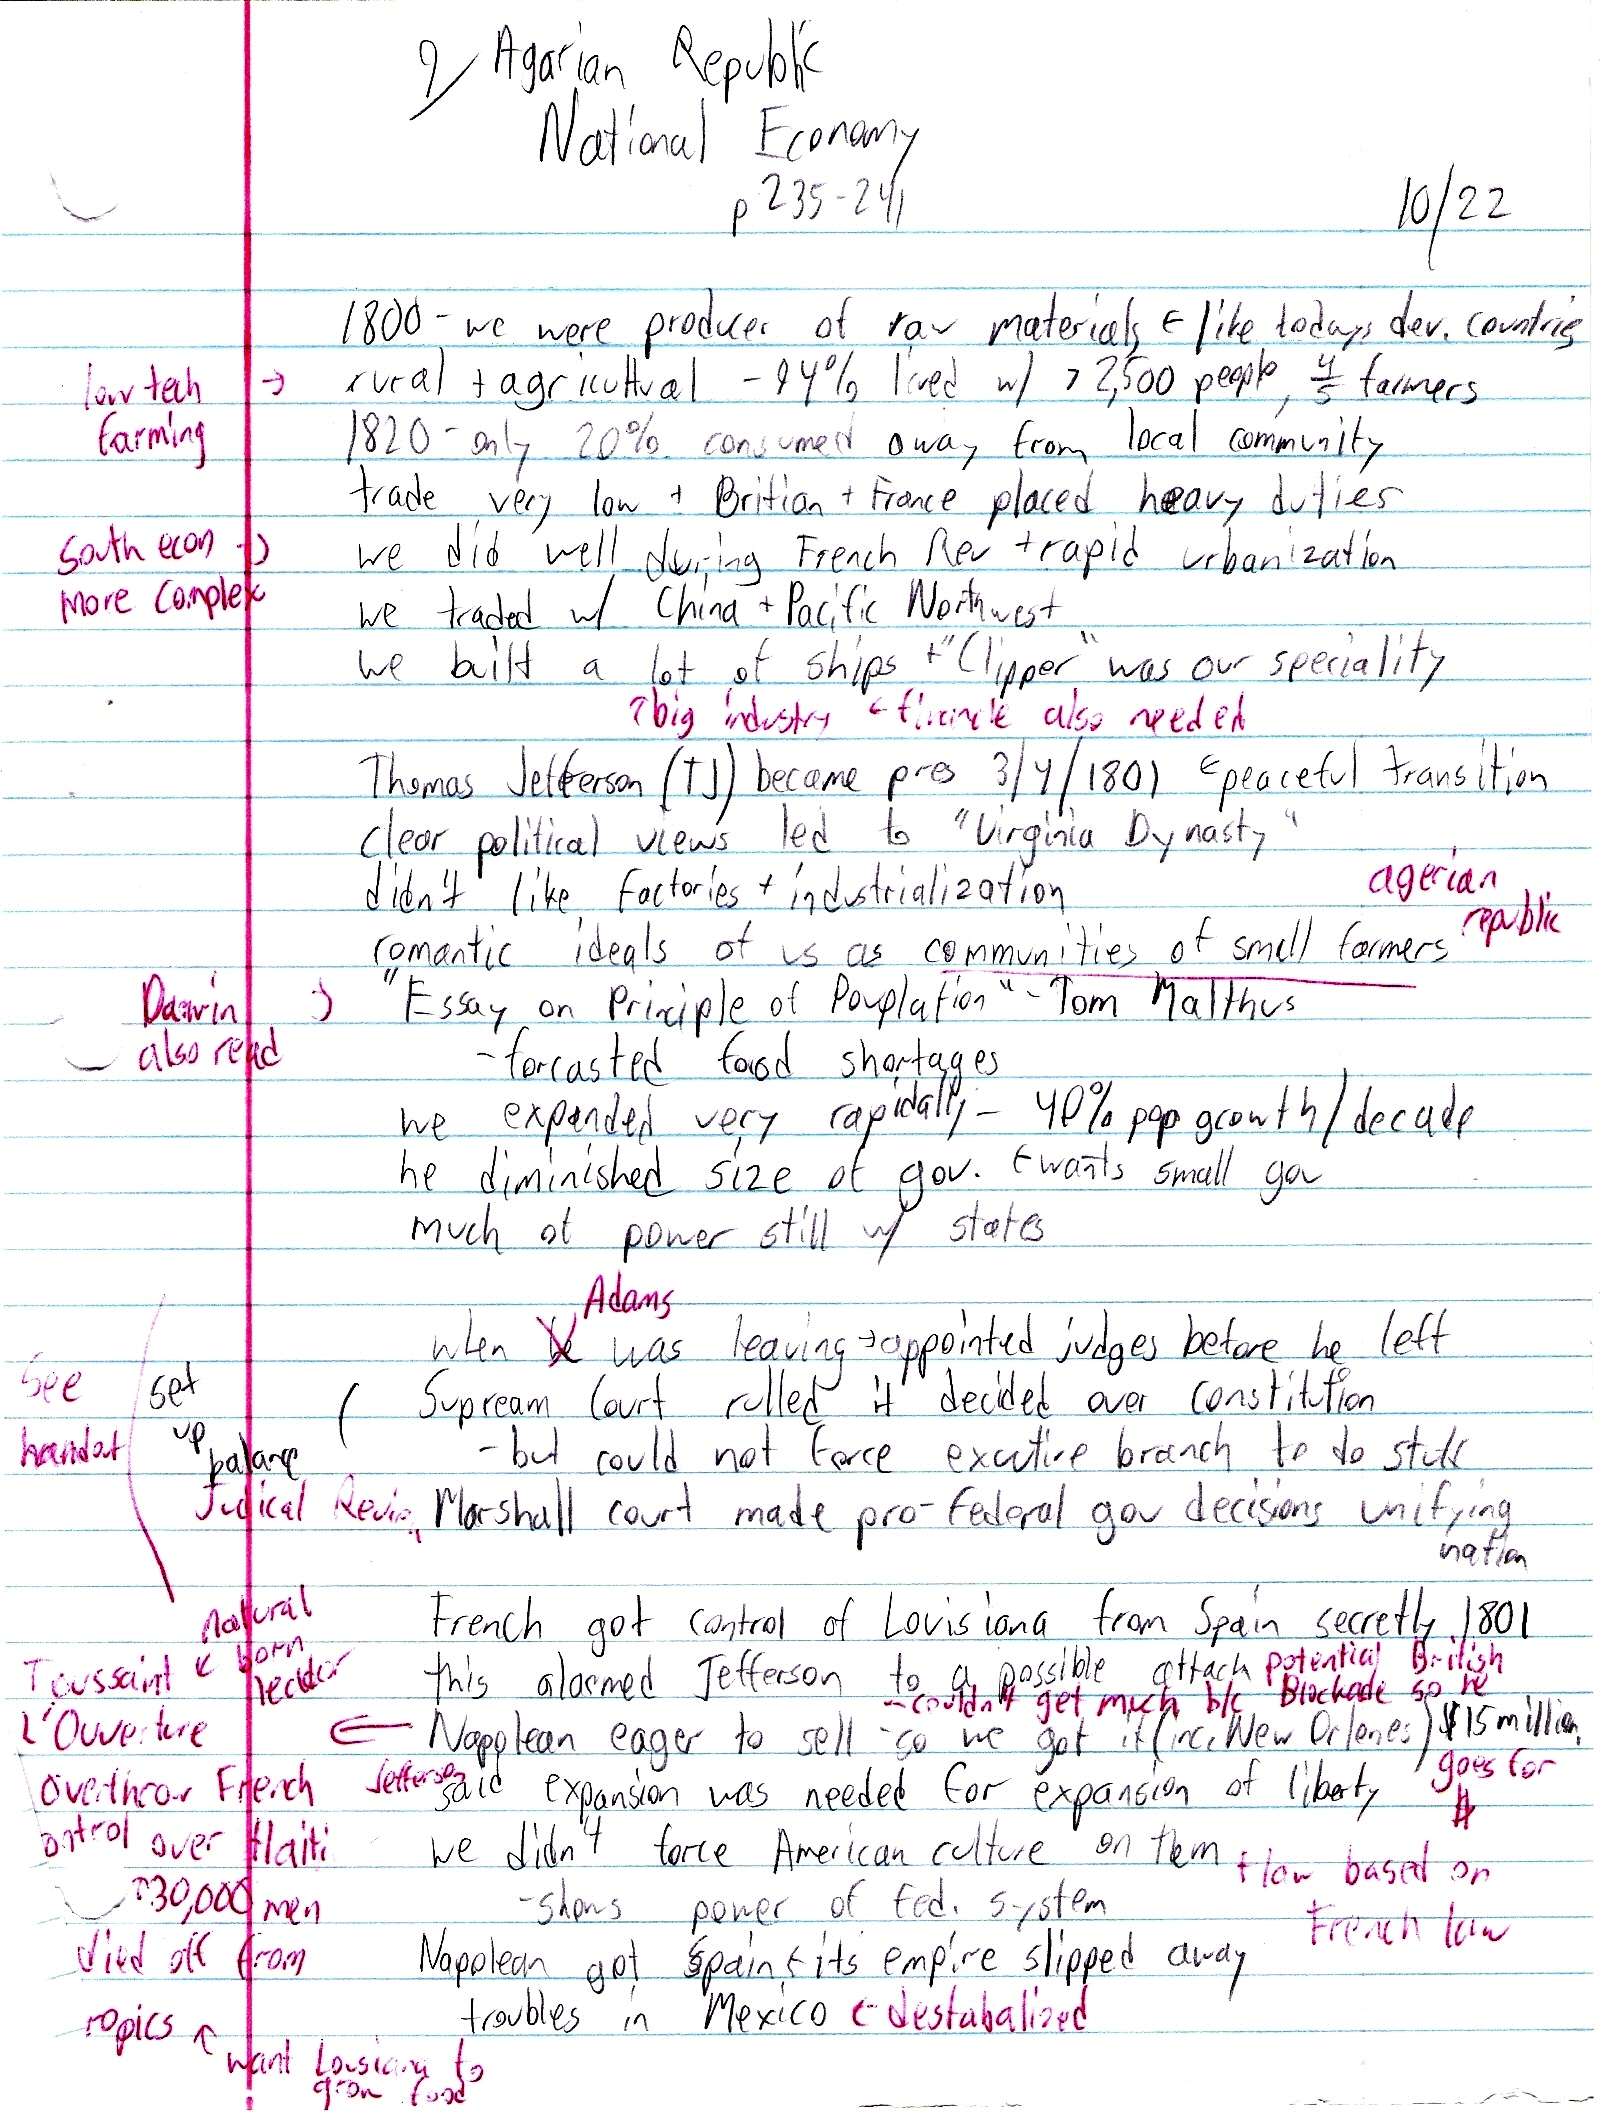 9/ Agarian Republic
National Economy
p 235-241
10/22
1800 - we were producer of raw materials ← like todays dev. countries
low tech → rural + agricultural - 94% lived w/ > 2,500 people, 4/5 farmers
farming 1820 - only 20% consumed away from local community
trade very low + Britian + France placed heavy duties
South econ → we did well during French Rev + rapid urbanization
More Complex we traded w/ China + Pacific Northwest
we built a lot of ships + "Clipper" was our speciality
↑ big industry ← financle also needed
Thomas Jefferson (TJ) became pres 3/4/1801 ← peaceful transition
clear political views led to "Virginia Dynasty"
didn't like factories + industrialization
agerian
republic
romantic ideals of us as communities of small farmers
Darwin → "Essay on Principle of Pouplation" - Tom Malthus
also read - forcasted food shortages
we expanded very rapidally - 40% pop growth/decade
he diminished size of gov. ← wants small gov
much of power still w/ states
Adams
when he was leaving → appointed judges before he left
See set ( Supream Court rulled it decided over constitution
handot up balance - but could not force excutive branch to do stuff
Judical Revie Marshall court made pro-federal gov decisions unifying
nation
natural French got control of Lovisiana from Spain secretly 1801
Toussaint ← born leader this alarmed Jefferson to a possible attach potential British
- couldn't get much b/c Blockade so he
L'Ouverture ← Nappolean eager to sell - so we got it (inc. New Orlenes) $15 million
goes for
#
Overthrow French Jefferson said expansion was needed for expansion of liberty
ontrol over Haiti we didn't force American culture on them + law based on
French law
↑ 30,000 men - shows power of fed. system
died off from Nappolean got Spain + its empire slipped away
ropics ↑ troubles in Mexico ← destabalized
want Lousiana to
grow food